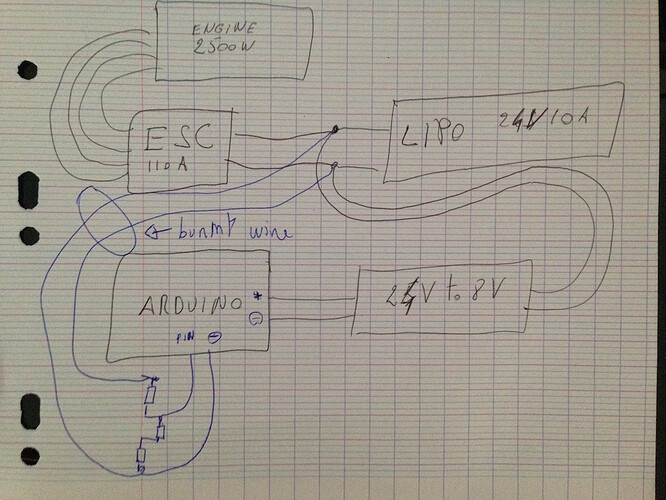 ENGINE
2500W
ESC
110A
LIPO 24V 10A
← burnt wire
ARDUINO +
⊖
PIN ⊖
24V to 8V